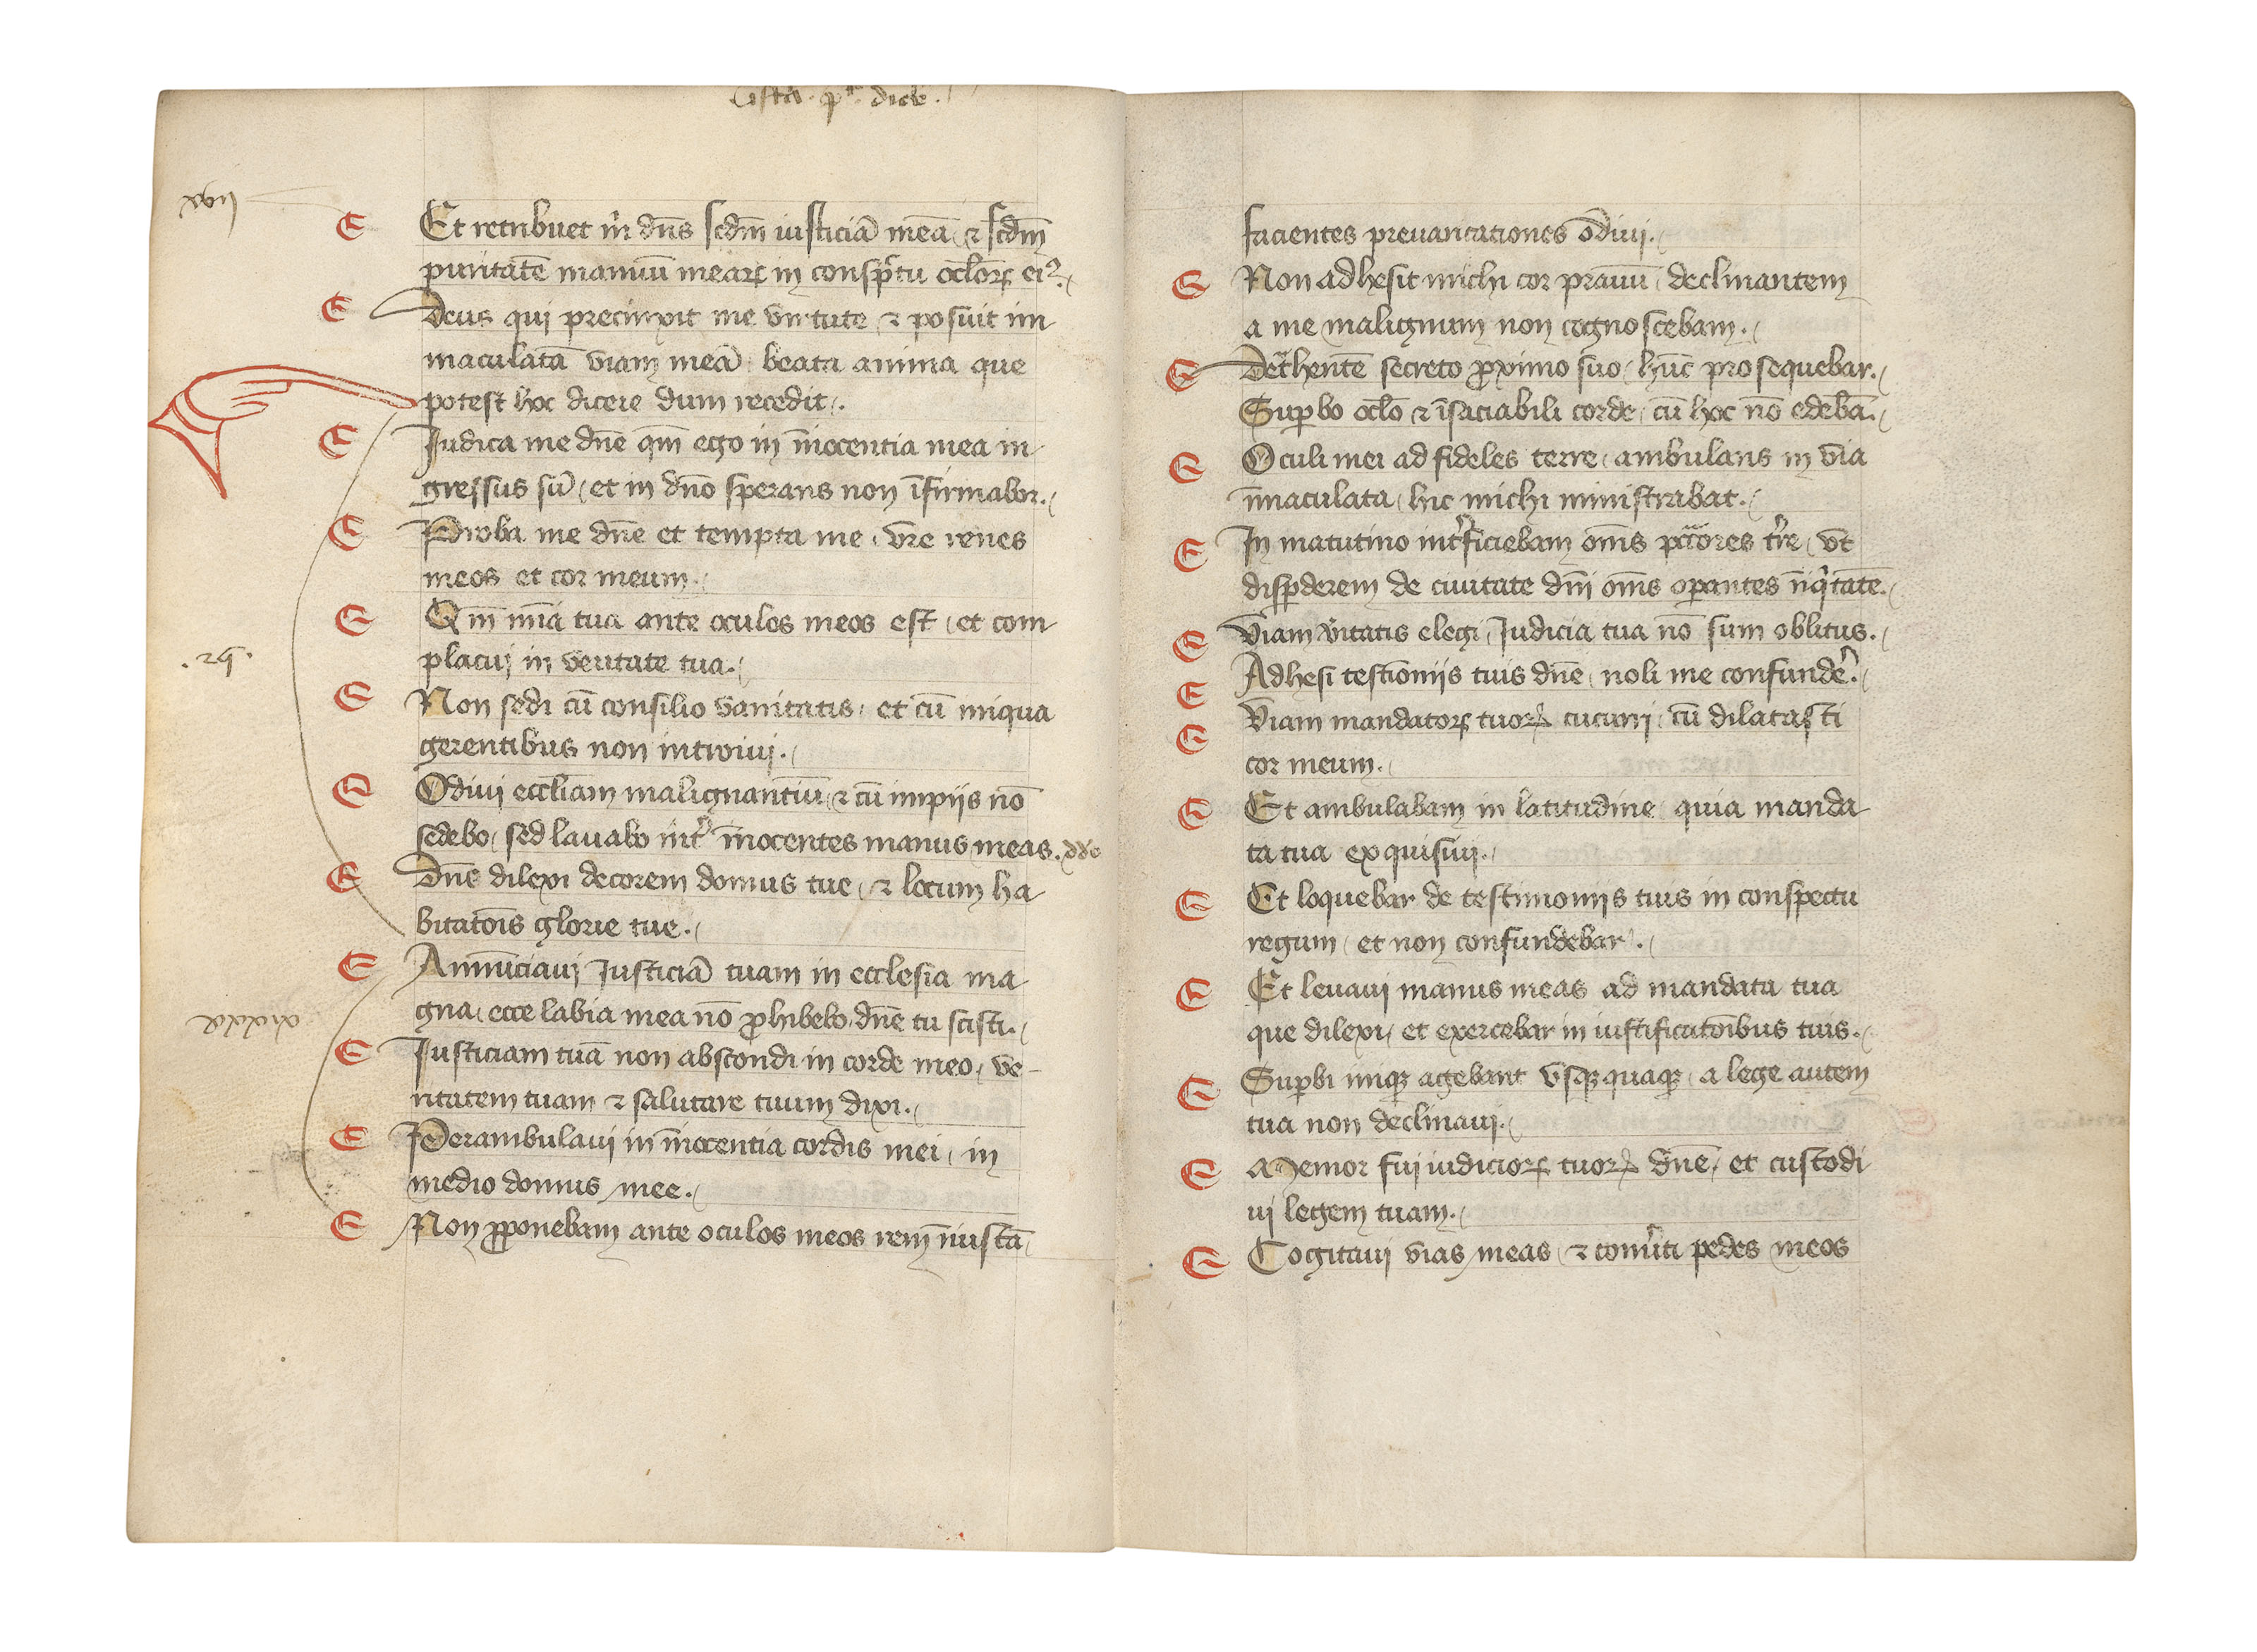 Et retribuet m̃ dñs scdm̃ iusticiã meã et scdm̃
puritatẽ manuũ mearꝝ in conspc̃tu oclorꝝ eiꝰ.
Deus qui precinxit me virtute et posuit im
maculatã viam meã beata anima que
potest hoc dicere dum recedit.
Judica me dñe qm̃ ego in ĩnocentia mea in
gressus sũ et in dño sperans non ĩfirmabor.
Proba me dñe et tempta me vre renes
meos et cor meum.
Qm̃ mĩa tua ante oculos meos est et com
placuj in veritate tua.
Non sedi cũ consilio vanitatis et cũ iniqua
gerentibus non introiuj.
Odiuj eccliam malignantiũ et cũ impijs nõ
sedebo sed lauabo int̉ ĩnocentes manus meas.
Dñe dilexi decorem domus tue et locum ha
bitatõis glorie tue.
Annũciauj Justiciã tuam in ecclesia ma
gna ecce labia mea nõ ꝓhibebo dñe tu scisti.
Justiciam tuã non abscondi in corde meo ve-
ritatem tuam et salutare tuum dixi.
Perambulaui in ĩnocentia cordis mei in
medio domus mee.
Non ꝓponebam ante oculos meos rem ĩiustã
facientes preuaricationes õdiuj.
Non adhesit michi cor prauũ declinantem
a me malignum non cognoscebam.
Det̃hentẽ secreto ꝓximo suo hũc prosequebar.
Suꝑbo oclõ et ĩsaciabili corde cũ hoc nõ edebã.
Oculi mei ad fideles terre ambulans in via
ĩmaculata hic michi ministrabat.
In matutino int̉ficiebam om̃s pc̃cores tr̃e vt
disꝑderem de ciuitate dñi om̃s oꝑantes ĩiq̃tatẽ.
Viam v̉itatis elegi Judicia tua nõ sum oblitus.
Adhesi testiõmijs tuis dñe noli me confunde̾.
Viam mandatorꝝ tuorꝝ cucurri cũ dilatasti
cor meum.
Et ambulabam in latitudine quia manda
ta tua exquisiuj.
Et loquebar de testimonijs tuis in conspectu
regum et non confundebar.
Et leuauj manus meas ad mandata tua
que dilexi et exercebar in iustificatõibus tuis.
Suꝑbi iniqꝫ agebant vsqꝫquaqꝫ a lege autem
tua non declinauj.
Memor fuj iudiciorꝝ tuorꝝ dñe et custodi
uj legem tuam.
Cogitauj vias meas et conu̾ti pedes meos